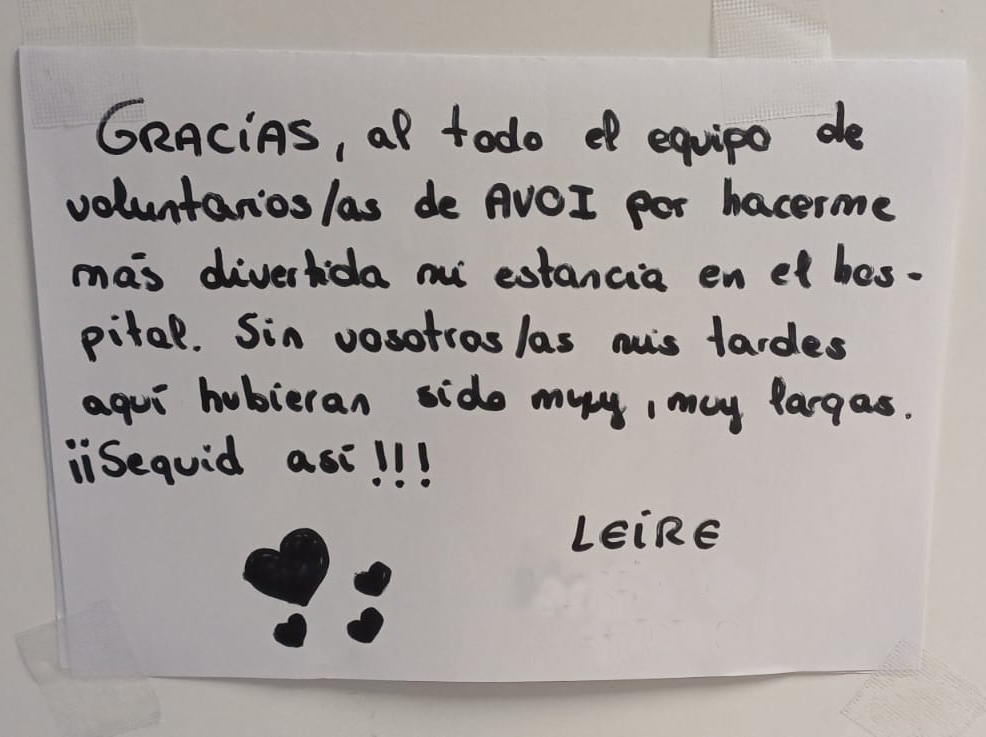 GRACIAS, al todo el equipo de
voluntarios/as de AVOI por hacerme
más divertida mi estancia en el hos-
pital. Sin vosotros/as mis tardes
aquí hubieran sido muy, muy largas.
¡¡Seguid así!!!
LEIRE